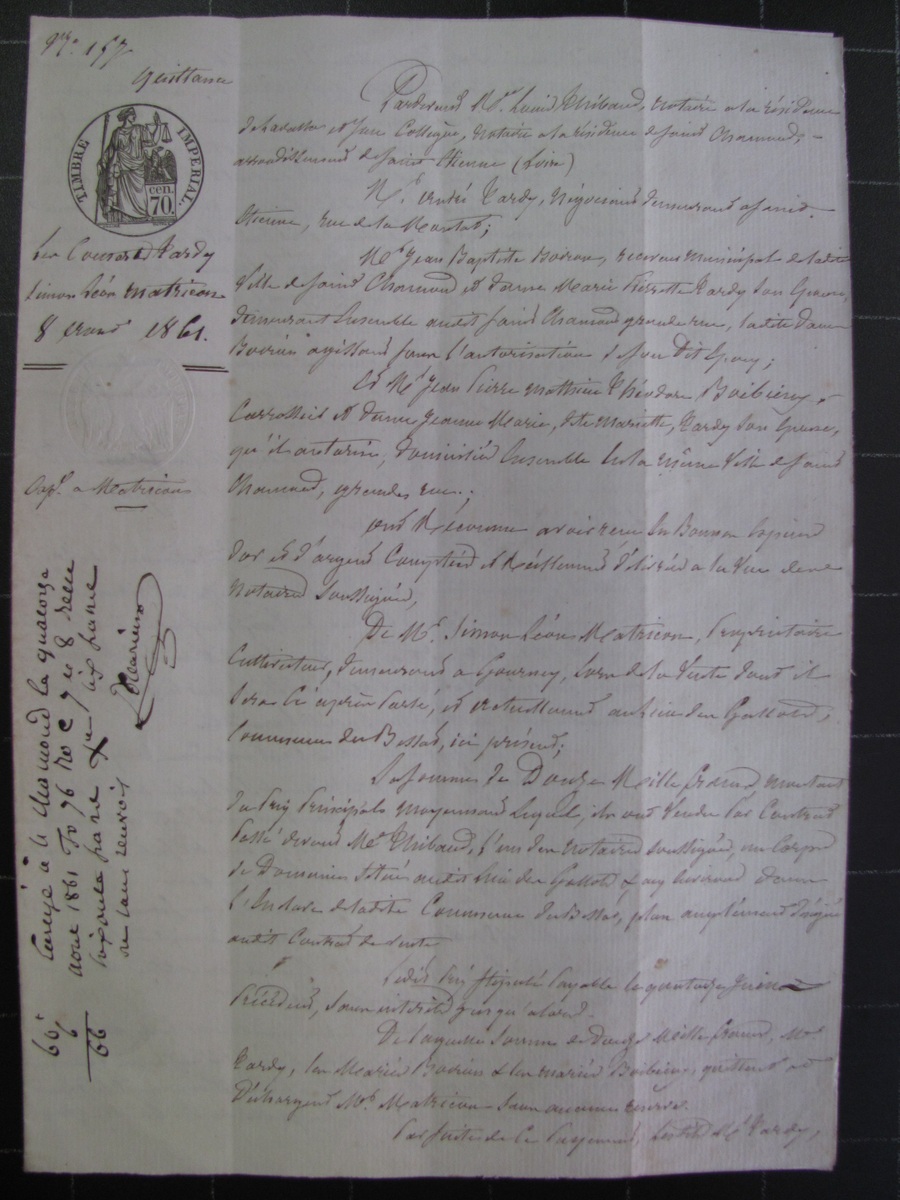 N.º 157
Quittance
TIMBRE IMPERIAL
cen. 70.
Les Consorts Tardy
Simon Léon Matricon
8 1861.
Exp. à Matricon
Enregé à St Chamond le quatorze
aout 1861 fo 96 Ro C 7 et 8 reçu
soixante francs & six francs
60
6
66
Pardevant Me. Louis Thibaud, notaire à la résidence
de et son Collègue, notaire à la résidence de Saint Chamond, -
arrondissement de Saint Etienne (Loire)
Mr. André Tardy, Négociant demeurant à Saint-
Etienne, rue de la Montat;
Mr. Jean Baptiste Boiron, receveur Municipal de ladite
Ville de Saint Chamond et dame Marie Pierrette Tardy son Epouse,
demeurant Ensemble audit Saint Chamond grande rue, ladite dame
Boiron agissant sous l'autorisation de son dit Epoux;
Et Mr. Jean Pierre Mathieu Théodore
Carrossier et dame Jeanne Marie, dite Mariette, Tardy son Epouse,
qu'il autorise, domiciliés Ensemble en la même Ville de Saint
Chamond, grande rue;
Ont Reconnu avoir reçu En Bonnes Espèces
d'or et d'argent Comptées et Réellement délivrées à la Vue des
Notaires Soussignés,
De Mr. Simon Léon Matricon, Propriétaire
Cultivateur, demeurant à lors de la Vente dont il
Sera Ci après Parlé, et actuellement au lieu des
Commune du Bessat, ici présent;
La Somme de Douze Mille francs, montant
du Prix Principal moyennant Lequel, ils ont Vendu Par Contrat
Passé devant Me. Thibaud, l'un des notaires soussignés, un Corps
de Domaine Situé audit lieu des & aux environs dans
l'Enclave de ladite Commune du Bessat, plus amplement désigné
audit Contrat de Vente
Ledit Prix Stipulé Payable le quatorze Juin
Précédent, Sans intérêts jusqu'alors.
De laquelle Somme de Douze Mille francs, Mr.
Tardy, les Mariés Boiron & les mariés quittent et
Déchargent Mr. Matricon Sans aucune réserve.
Par Suite de Ce Payement, lesdits Mr. Tardy,